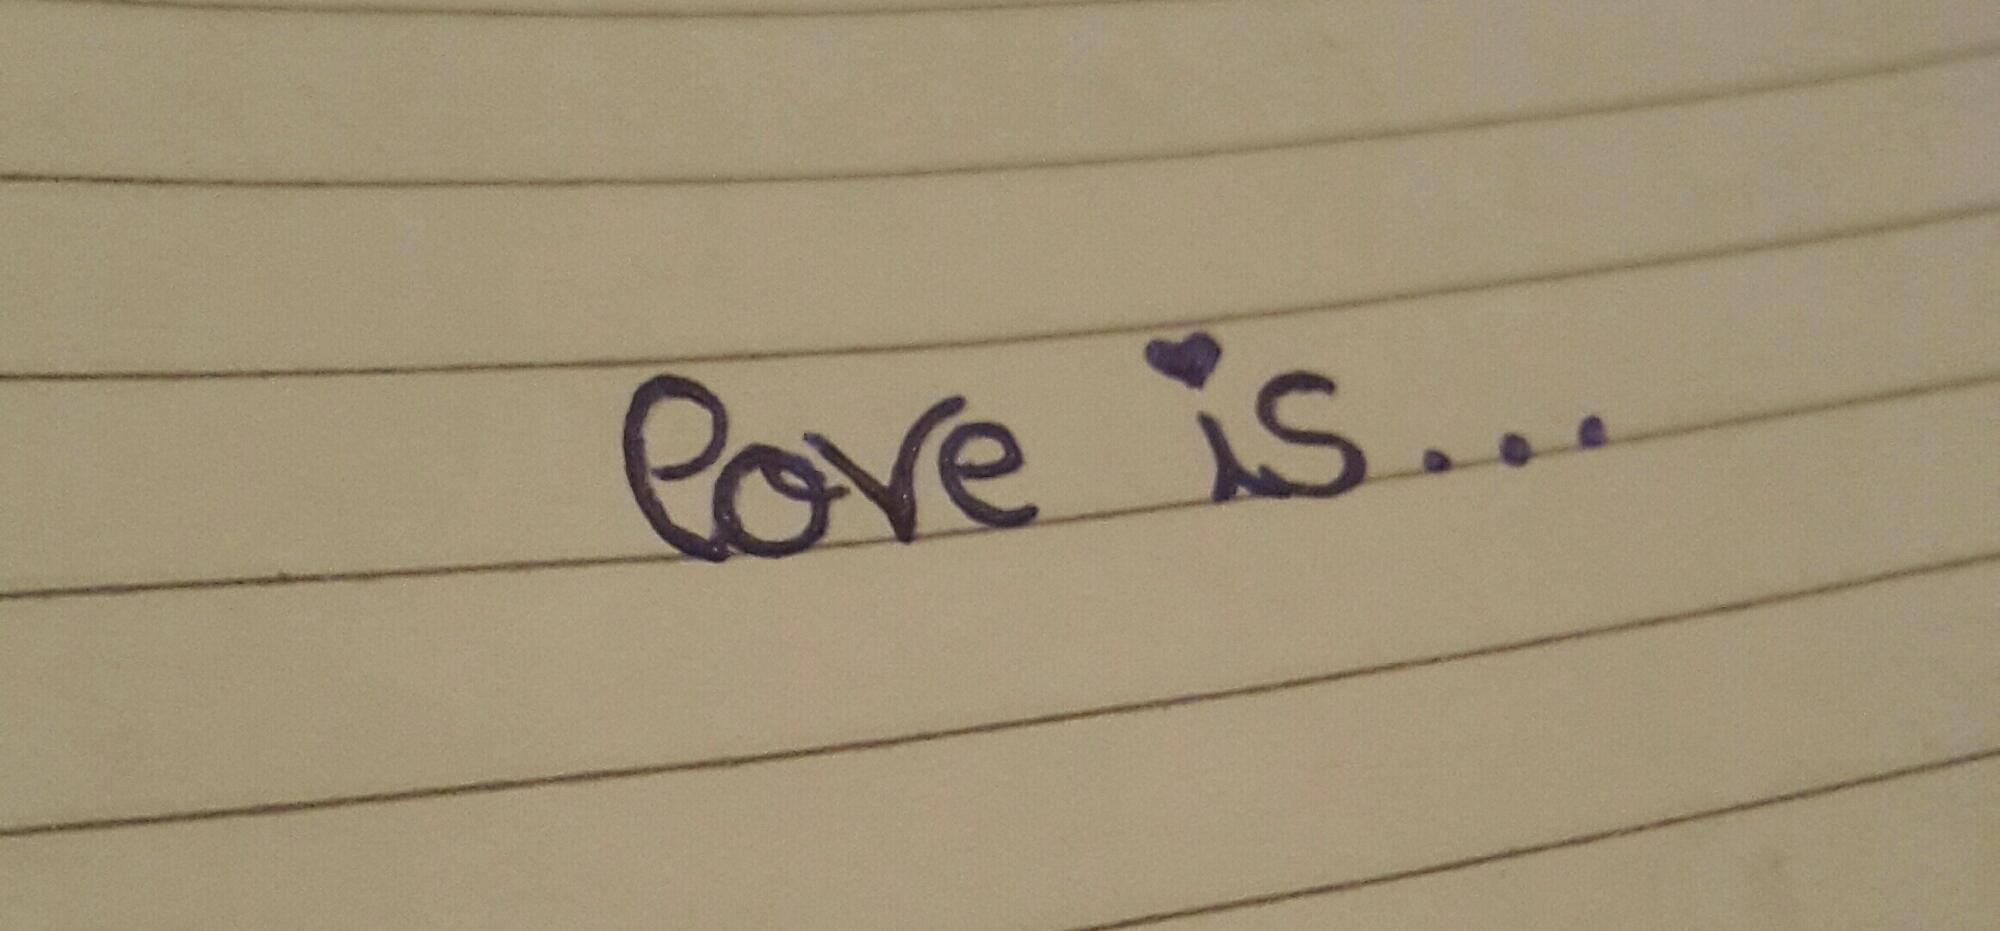 love is...